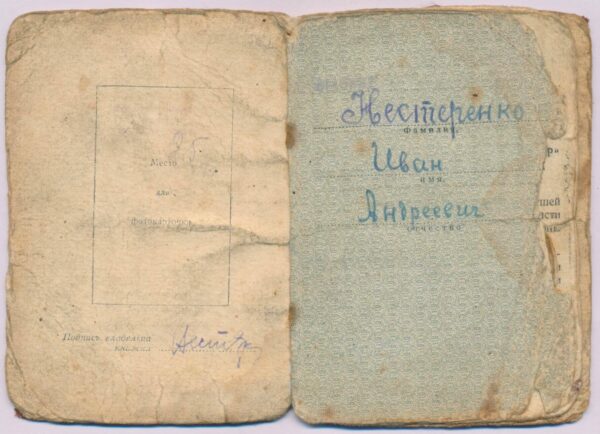 Место
для
фотокарточки
Подпись владельца
книжки
Нестеренко
Фамилия
Иван
имя
Андреевич
отчество